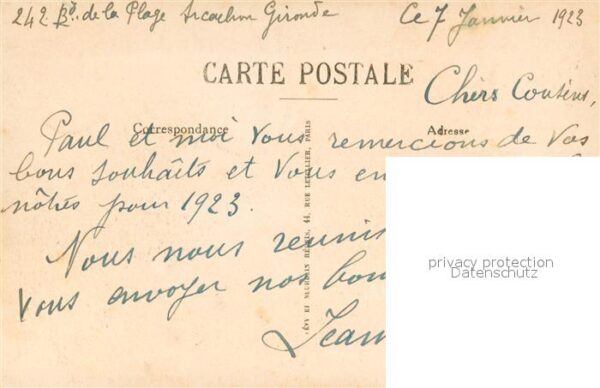 242 Bd. de la Plage Arcachon Gironde Ce 7 Janvier 1923
CARTE POSTALE
Chers Cousins,
Correspondance Adresse
Paul et moi Vous remercions de Vos
bons souhaits et Vous en
nôtres pour 1923.
Nous nous reunis
Vous envoyer nos bon
Jean
LÉVY ET NEURDEIN RÉUNIS, 44, RUE LETELLIER, PARIS
privacy protection
Datenschutz